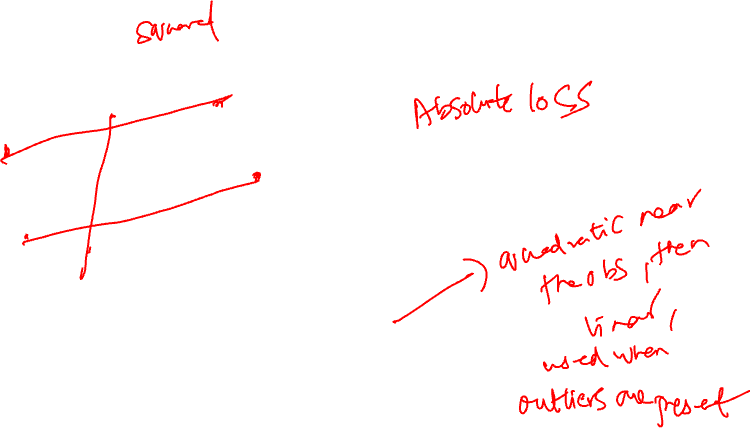 squared
Absolute loss
quadratic near
the obs, then
linear,
used when
outliers are present